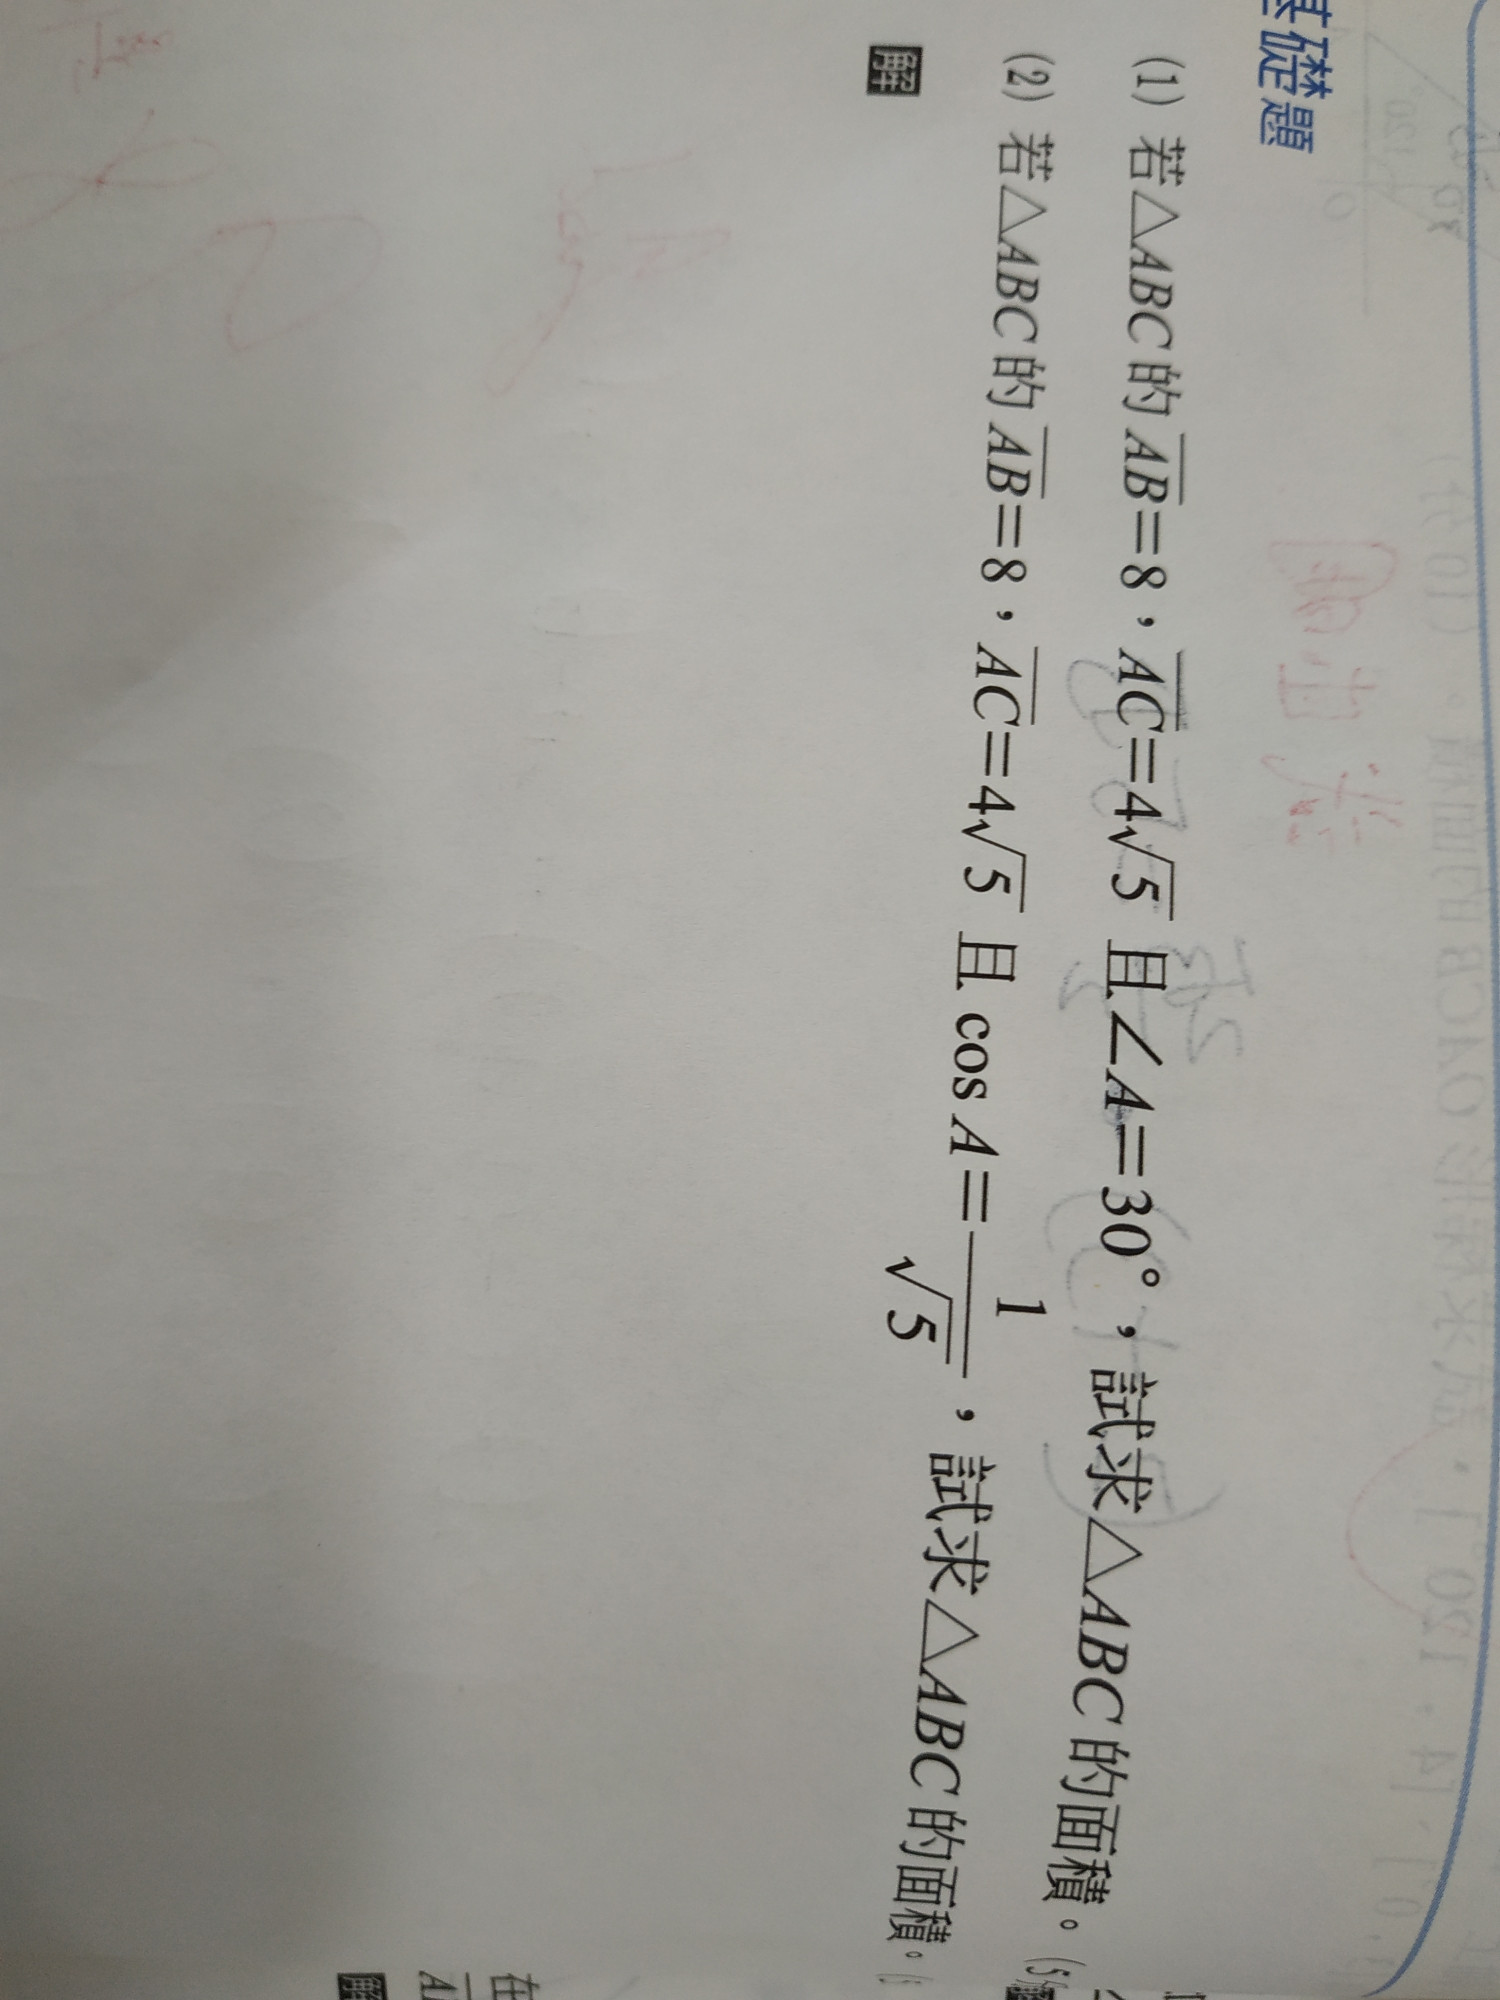 基礎題
(1) 若△ABC的 AB=8，AC=4√5 且∠A=30°，試求△ABC的面積。(5
(2) 若△ABC的 AB=8，AC=4√5 且 cos A=1/√5，試求△ABC的面積。
解
解